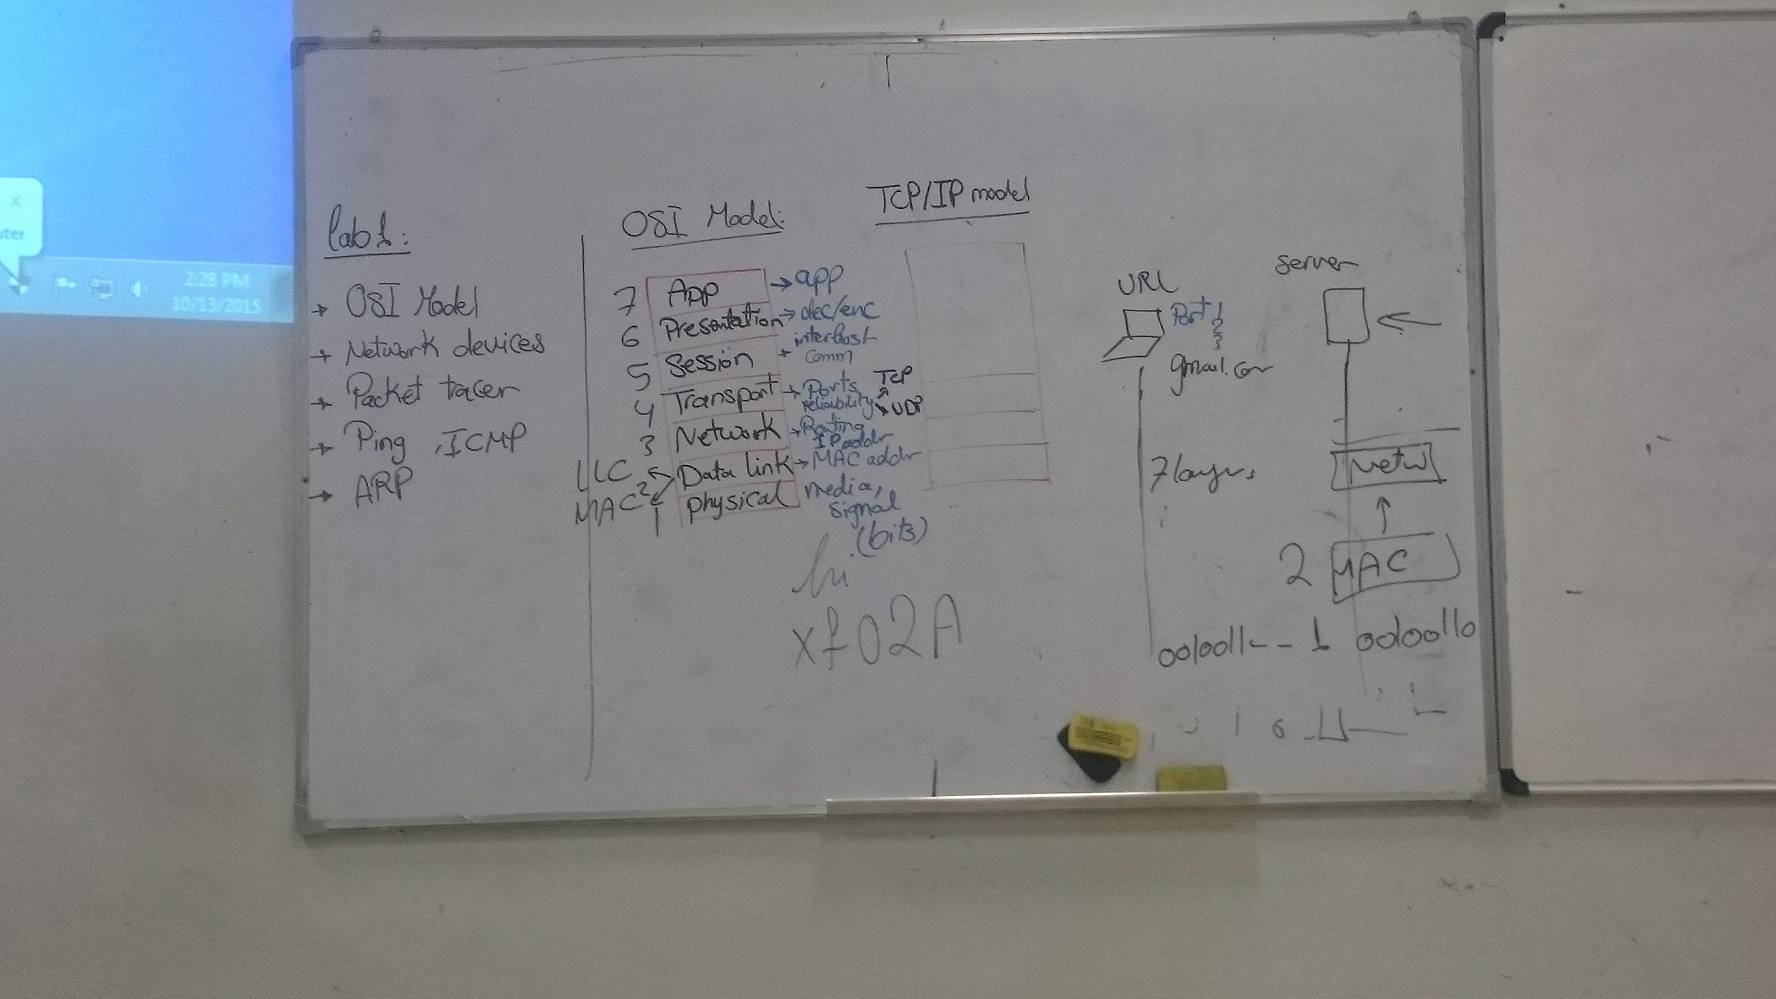 uter
2:28 PM
10/13/2015
Lab 1:
→ OSI Model
→ Network devices
→ Packet tracer
→ Ping, ICMP
→ ARP
OSI Model:
7 App → app
6 Presentation → dec/enc
5 Session → interhost comm
4 Transport → Ports reliability TCP UDP
3 Network → Routing IP addr
LLC
MAC
2 Data link → MAC addr
1 physical media, signal (bits)
hi
xf02A
TCP/IP model
URL
Port 1
2
3
gmail.com
7 layers
server
Netw
2 MAC